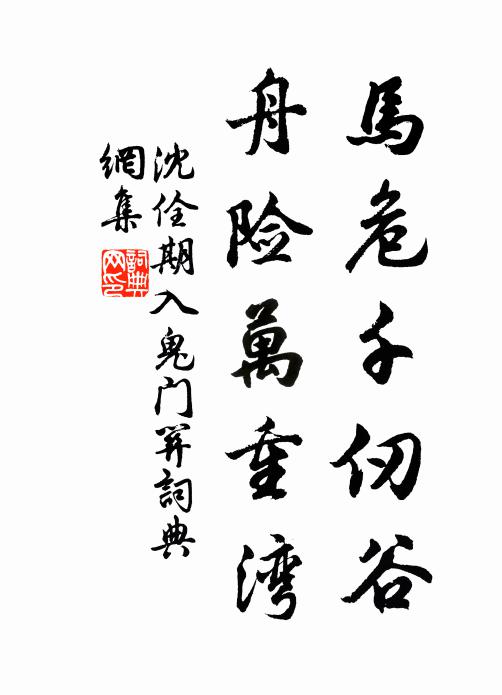 馬危千仞谷
舟险萬重湾
沈佺期入鬼门関詞典
網集
詞典网印